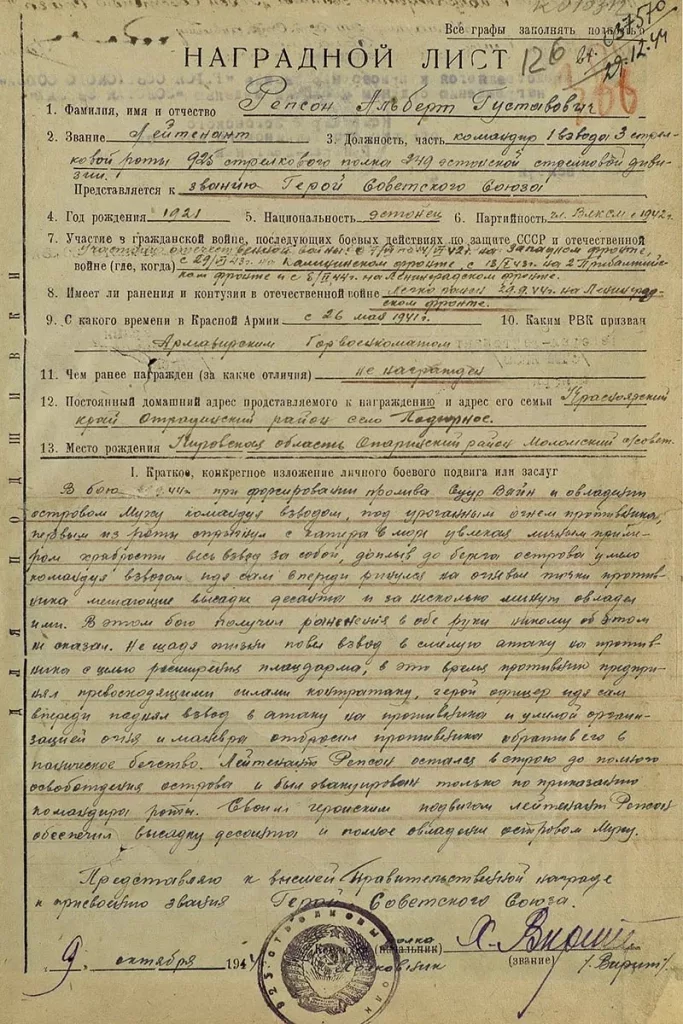 Все графы заполнять полностью
НАГРАДНОЙ ЛИСТ 126
29.12.44
1. Фамилия, имя и отчество Репсон Альберт Густавович
2. Звание Лейтенант 3. Должность, часть командир 1 взвода 3 стрел-
ковой роты 925 стрелкового полка 249 эстонской стрелковой диви-
зии.
Представляется к званию Герой Советского Союза
4. Год рождения 1921 5. Национальность эстонец 6. Партийность чл. ВЛКСМ с 1942г.
7. Участие в гражданской войне, последующих боевых действиях по защите СССР и отечественной
войне (где, когда)
Участник отечественной войны с на Западном фронте,
с на Калининском фронте, с на 2 Прибалтий-
ском фронте и с на Ленинградском фронте.
8. Имеет ли ранения и контузии в отечественной войне Легко ранен 29.9.44г на Ленинград-
ском фронте.
9. С какого времени в Красной Армии с 26 мая 1941г. 10. Каким РВК призван
Армавирским Горвоенкоматом
11. Чем ранее награжден (за какие отличия) не награжден
12. Постоянный домашний адрес продставляемого к награждению и адрес его семьи Красноярский
край район село Подгорное.
13. Место рождения Кировская область Опаринский район Моломский с/совет.
I. Краткое, конкретное изложение личного боевого подвига или заслуг
В бою при форсировании пролива Суур Вяйн и овладении
островом Муху командуя взводом, под ураганным огнем противника,
первым из роты спрыгнул с катера в море увлекая личным приме-
ром храбрости весь взвод за собой, доплыв до берега острова умело
командуя взводом идя сам впереди ринулся на огневые точки против-
ника мешающие высадке десанта и за несколько минут овладел
ими. В этом бою получил ранения в обе руки никому об этом
не сказал. Не щадя жизни повел взвод в смелую атаку на против-
ника с целью расширения плацдарма, в это время противник предпри-
нял превосходящими силами контратаку, герой офицер идя сам
впереди поднял взвод в атаку на противника и умелой органи-
зацией огня и маневра отбросил противника обратив его в
паническое бегство. Лейтенант Репсон остался в строю до полного
освобождения острова и был эвакуирован только по приказанию
командира роты. Своим геройским подвигом лейтенант Репсон
обеспечил высадку десанта и полное овладение островом Муху.
Представляю к высшей Правительственной награде
к присвоению звания Герой Советского Союза.
полка
(начальник)
Полковник (звание) /Вирит/
9 октября 194
925 СТРЕЛКОВЫЙ ПОЛК
ДЛЯ ПОДШИВКИ